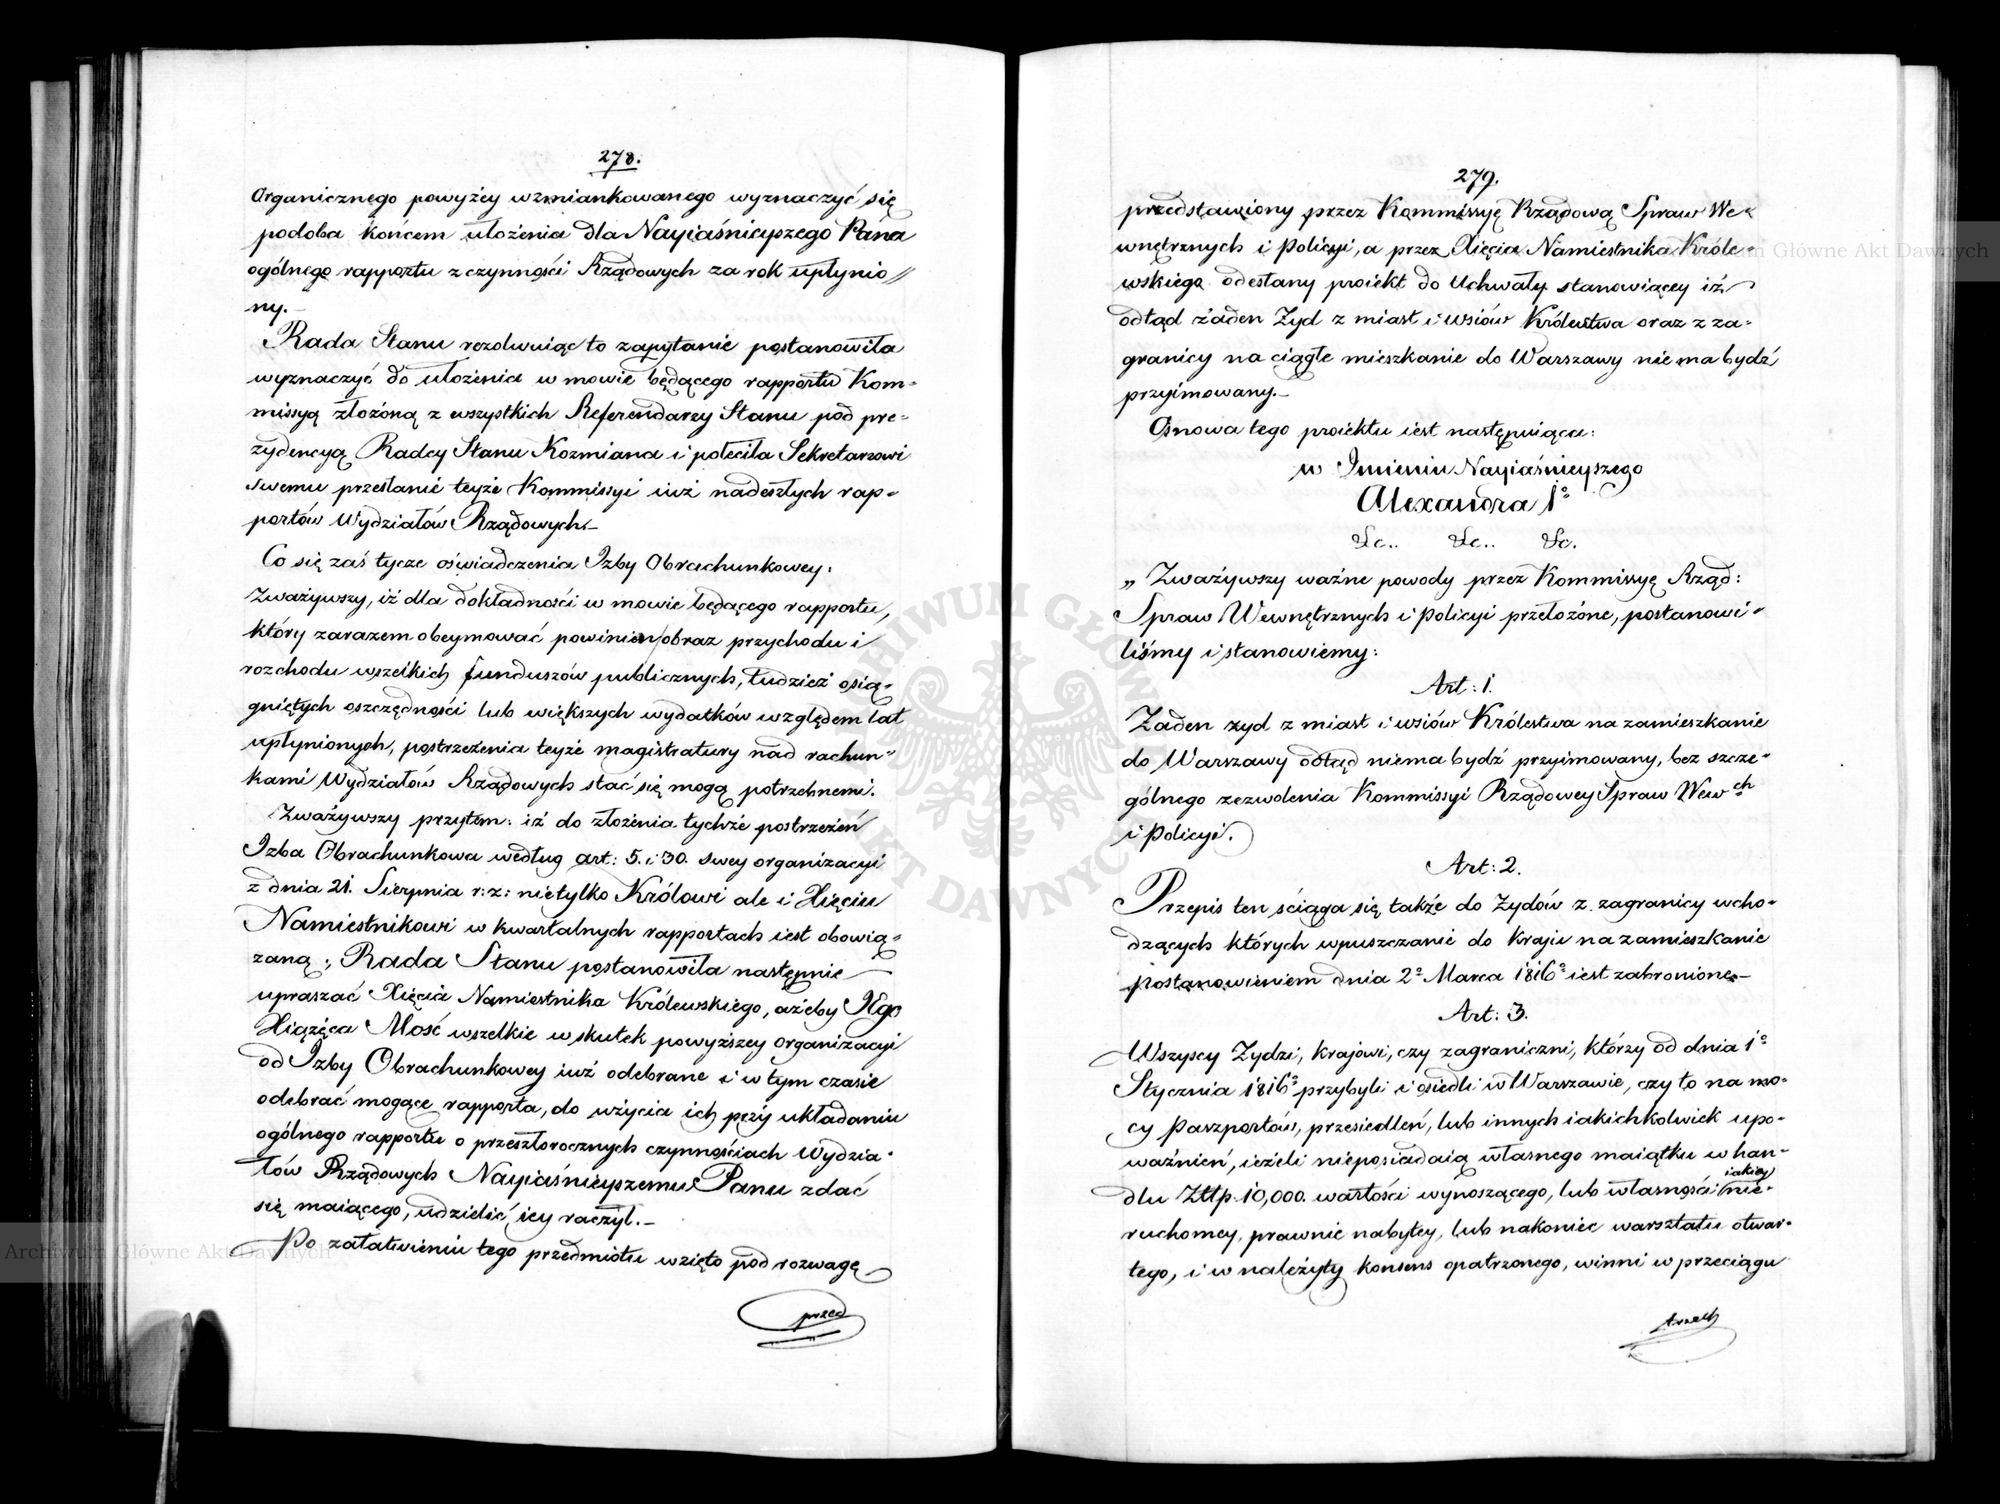 278.
Organicznego powyżey wzmiankowanego wyznaczyć się
podoba końcem ułożenia dla Nayiaśnieyszego Pana
ogólnego rapportu z czynności Rządowych za rok upłynio//
ny.-
Rada Stanu rezolwuiąc to zapytanie postanowiła
wyznaczyć do ułożenia w mowie będącego rapportu Kom-
missyą złożoną z wszystkich Referendarzy Stanu pod pre-
zydencyą Radcy Stanu Kozmiana i poleciła Sekretarzowi
swemu przesłanie teyże Kommissyi iuż nadeszłych rap-
portów Wydziałów Rządowych.-
Co się zaś tycze oświadczenia Izby Obrachunkowey:
Zważywszy, iż dla dokładności w mowie będącego rapportu,
który zarazem obeymować powinien obraz przychodu i
rozchodu wszelkich funduszów publicznych, tudzież osią-
gniętych oszczędności lub większych wydatków względem lat
upłynionych, postrzeżenia teyże magistratury nad rachun-
kami Wydziałów Rządowych stać się mogą potrzebnemi.
Zważywszy przytem: iż do złożenia tychże postrzeżeń
Izba Obrachunkowa według art: 5. i 30. swey organizacyi
z dnia 21. Sierpnia r: z: nietylko Królowi ale i Xięciu
Namiestnikowi w kwartalnych rapportach iest obowią-
zaną; Rada Stanu postanowiła następnie
upraszać Xięcia Namiestnika Królewskiego, ażeby Jego
Xiążęca Mość wszelkie w skutek powyższey organizacyi
od Izby Obrachunkowey iuż odebrane i w tym czasie
odebrać mogące rapporta, do użycia ich przy układaniu
ogólnego rapportu o przeszłorocznych czynnościach Wydzia-
łów Rządowych Nayiaśnieyszemu Panu zdać
się maiącego, udzielić iey raczył.-
Po załatwieniu tego przedmiotu wzięto pod rozwagę
przed
279.
przedstawiony przez Kommissyę Rządową Spraw We-
wnętrznych i Policyi, a przez Xięcia Namiestnika Króle-
wskiego odesłany proiekt do Uchwały stanowiącey iż
odtąd żaden Żyd z miast i wsiów Królestwa oraz z za-
granicy na ciągłe mieszkanie do Warszawy nie ma bydź
przyimowany.-
Osnowa tego proiektu iest następuiąca:
w Imieniu Nayiaśnieyszego
Alexandra Iº
&c.. &c.. &c.
„ Zważywszy ważne powody przez Kommissyę Rząd:
Spraw Wewnętrznych i Policyi przełożone, postanowi-
liśmy i stanowiemy:
Art: 1.
Żaden żyd z miast i wsiów Królestwa na zamieszkanie
do Warszawy odtąd niema bydź przyimowany, bez szcze-
gólnego zezwolenia Kommissyi Rządowey Spraw Wewch
i Policyi.
Art: 2.
Przepis ten ściąga się także do Żydów z zagranicy wcho-
dzących których wpuszczanie do Kraju na zamieszkanie
postanowieniem dnia 2º Marca 1816º iest zabronione.-
Art: 3.
Wszyscy Żydzi, krajowi, czy zagraniczni, którzy od dnia 1º
Stycznia 1816º przybyli i osiedli w Warszawie, czy to na mo-
cy paszportów, przesiedleń, lub innych iakichkolwiek upo-
ważnień, ieżeli nieposiadaią własnego maiątku w han-
dlu Złłp. 10,000. wartości wynoszącego, lub własności iakiey nie-
ruchomey, prawnie nabytey, lub nakoniec warsztatu otwar-
tego, i w należyty konsens opatrzonego, winni w przeciągu
trzech
Archiwum Główne Akt Dawnych
Archiwum Główne Akt Dawnych
ARCHIWUM GŁÓWNE AKT DAWNYCH